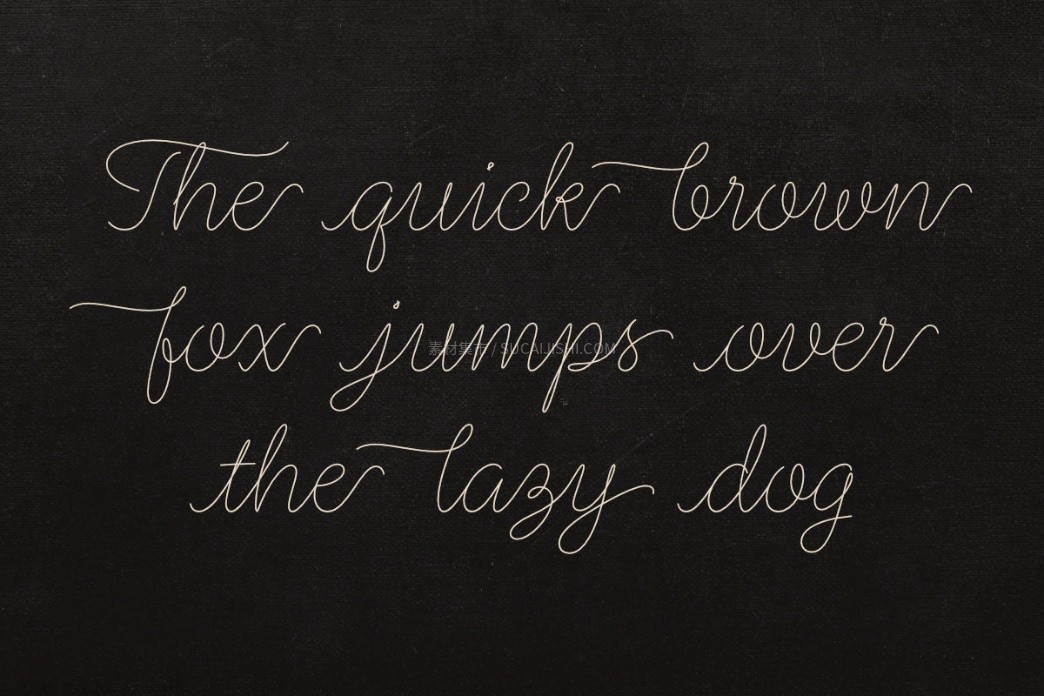 The quick brown
fox jumps over
素材集市 / SUCAIJISHI.COM
the lazy dog